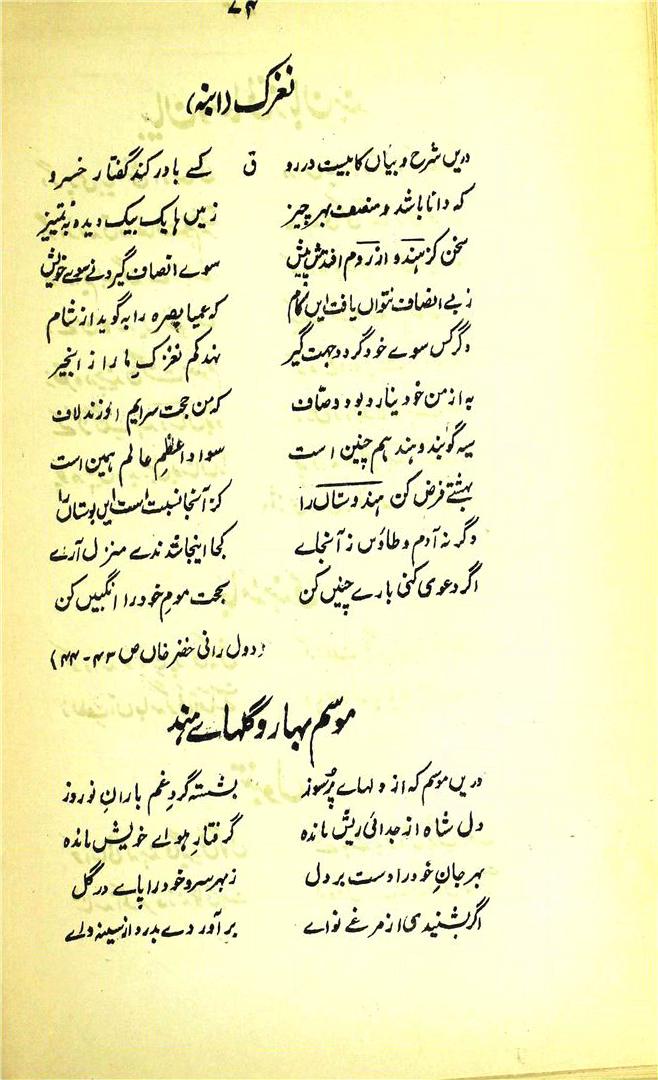 ۷۴
نغزک (انبہ)
دریں شرح و بیاں کابیت در رو ق کے باور کند گفتار خسرو
کہ دانا باشد و منصف بہر چیز زمیں ہا یک بیک دیدہ بہ تمییز
سخن کز ہند و از روم افتدش پیش سوے انصاف گیرد نے سوے خویش
ز بے انصاف نتواں یافت ایں کام کہ عمیا بصرہ را بہ گوید از شام
دگر کس سوے خود گردد جہت گیر نہد کم نغزک ما را ز انجیر
بہ از من خود نیارد بود وصاف کہ من حجت سرایم او زند لاف
سیہ گویند و ہند ہم چنین است سواد اعظم عالم ہمین است
بہشتے فرض کن ہندوستاں را کز آنجا نسبت است ایں بوستاں را
دگر نہ آدم و طاؤس ز آنجاے کجا اینجا شدندے منزل آراے
اگر دعوی کنی بارے چنیں کن بحجت موم خود را انگبیں کن
(دول رانی خضر خاں ص ۴۳-۴۴)
موسم بہار و گلہاے ہند
دریں موسم کہ از دلہاے پرسوز بشستہ گرد غم باران نوروز
دل شاہ از جدائی ریش ماندہ گرفتار ہواے خویش ماندہ
بہر جان خود را دست بر دل زہر سرو خود را پاے در گل
اگر بشنیدی از مرغے نواے بر آوردے بدرد از سینہ واے